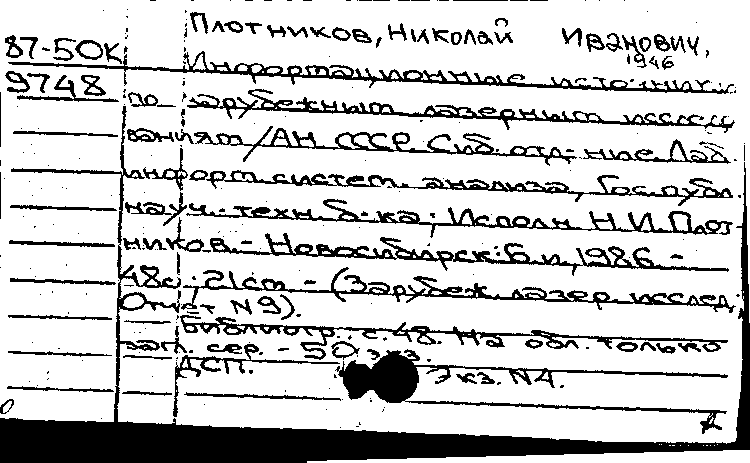 Плотников, Николай Иванович,
1946
87-50К
9748
Информационные источники
по зарубежным лазерным исслед
ваниям / АН СССР. Сиб. отд-ние. Лаб.
информ. систем. анализа, Гос. публ.
науч.-техн. б-ка; Исполн. Н. И. Плот-
ников. - Новосибирск: Б. и, 1986. -
48с.; 21см - (Зарубеж. лазер. исслед.;
Отчет N 9).
Библиогр.: с. 48. На обл. только
загл. сер. - 50 экз.
ДСП. Экз. N4.